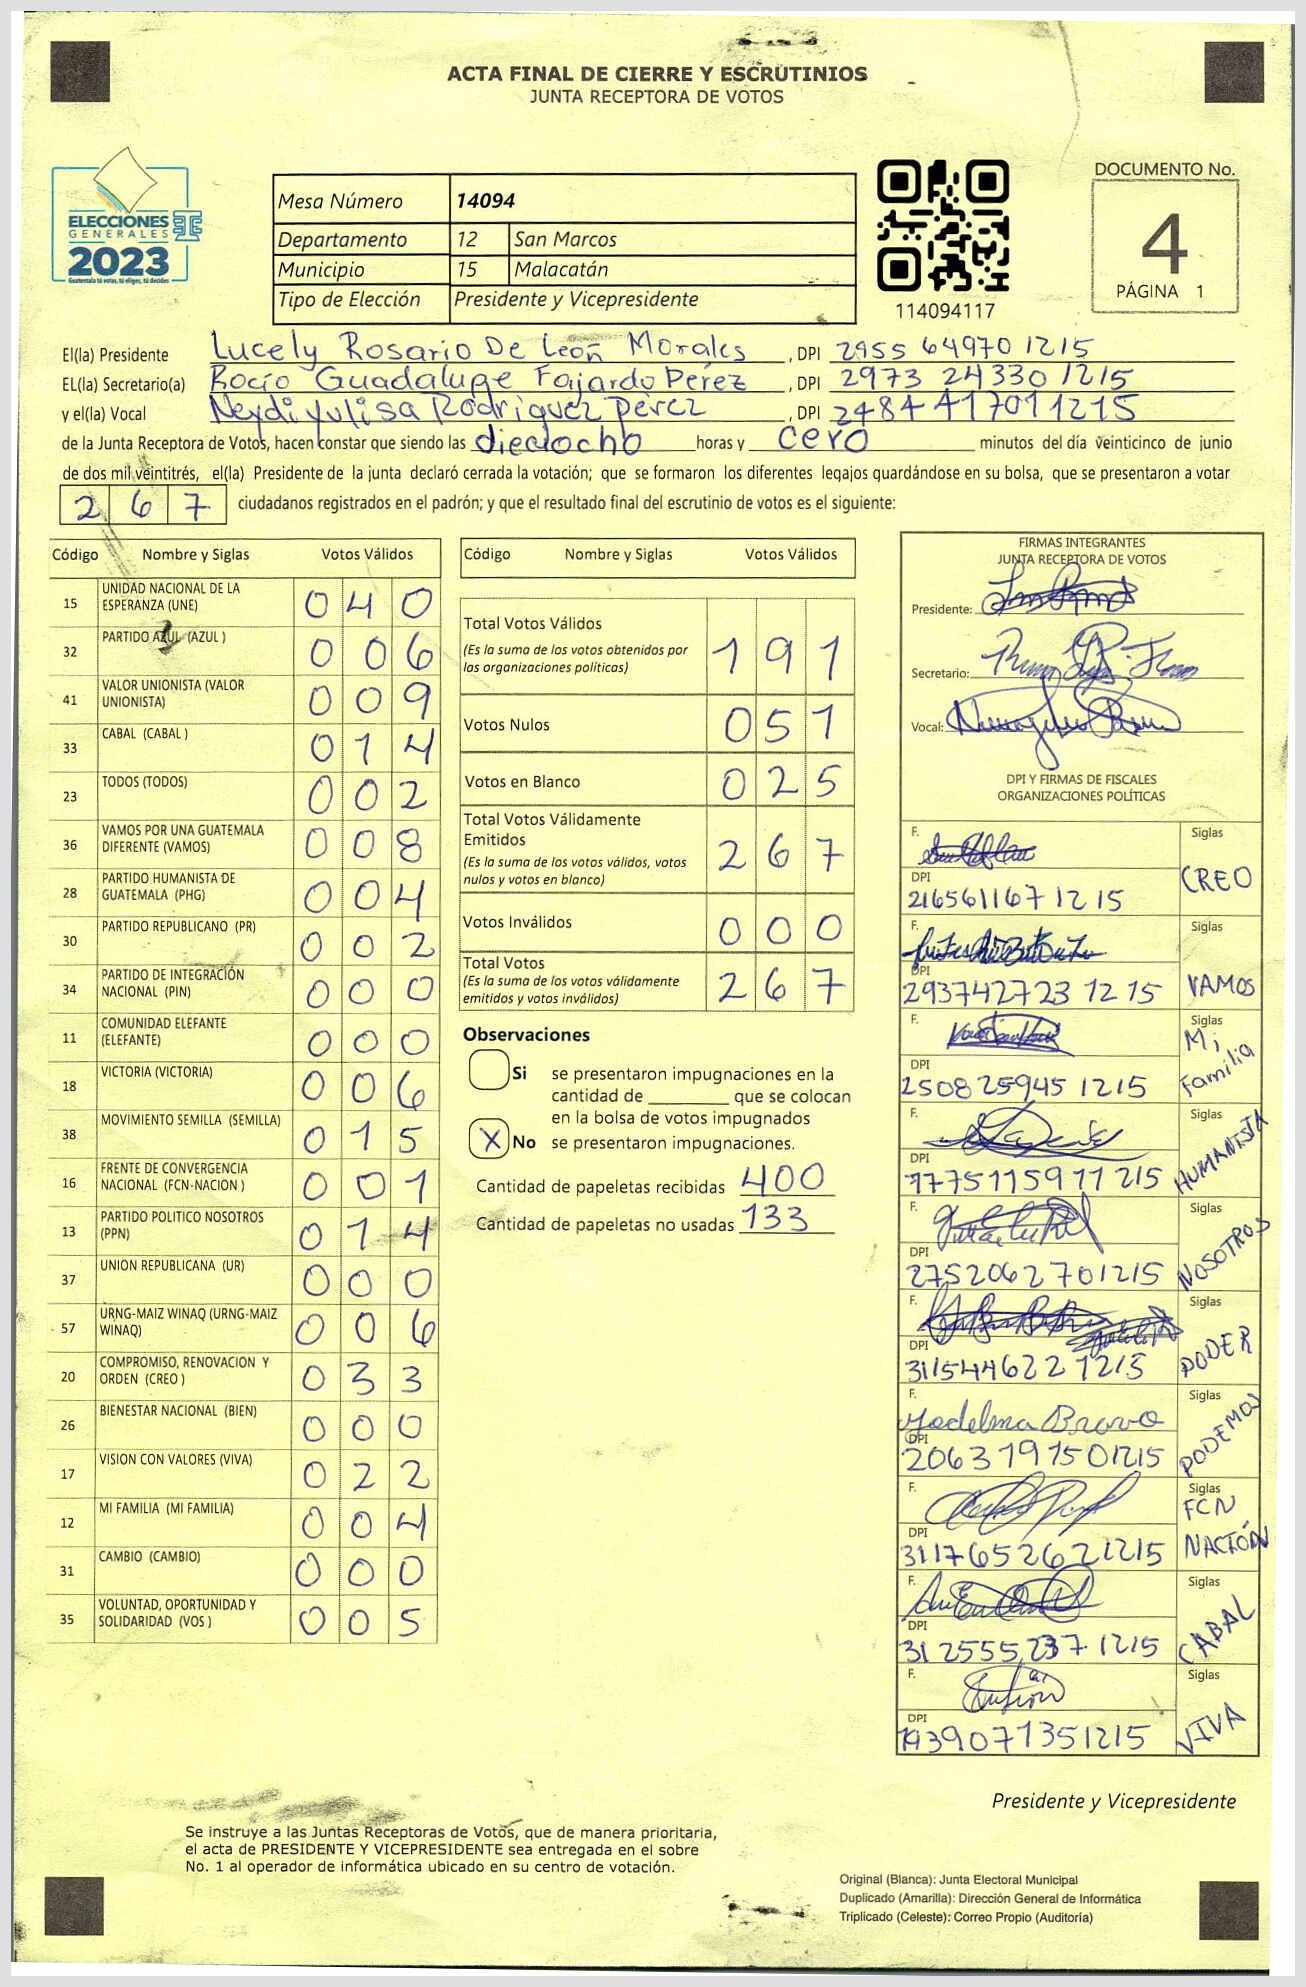 ACTA FINAL DE CIERRE Y ESCRUTINIOS
JUNTA RECEPTORA DE VOTOS
ELECCIONES
GENERALES
2023
Guatemala tú votas, tú eliges, tú decides
Mesa Número 14094
Departamento 12 San Marcos
Municipio 15 Malacatán
Tipo de Elección Presidente y Vicepresidente
114094117
DOCUMENTO No.
4
PÁGINA 1
El(la) Presidente Lucely Rosario De León Morales, DPI 2955 64970 1215
EL(la) Secretario(a) Rocío Guadalupe Fajardo Pérez, DPI 2973 24330 1215
y el(la) Vocal Neydi Yulisa Rodríguez Pérez, DPI 2484 41701 1215
de la Junta Receptora de Votos, hacen constar que siendo las dieciocho horas y cero minutos del día veinticinco de junio
de dos mil veintitrés, el(la) Presidente de la junta declaró cerrada la votación; que se formaron los diferentes legajos guardándose en su bolsa, que se presentaron a votar
267 ciudadanos registrados en el padrón; y que el resultado final del escrutinio de votos es el siguiente:
Código Nombre y Siglas Votos Válidos
15 UNIDAD NACIONAL DE LA ESPERANZA (UNE) 040
32 PARTIDO AZUL (AZUL ) 006
41 VALOR UNIONISTA (VALOR UNIONISTA) 009
33 CABAL (CABAL ) 014
23 TODOS (TODOS) 002
36 VAMOS POR UNA GUATEMALA DIFERENTE (VAMOS) 008
28 PARTIDO HUMANISTA DE GUATEMALA (PHG) 004
30 PARTIDO REPUBLICANO (PR) 002
34 PARTIDO DE INTEGRACIÓN NACIONAL (PIN) 000
11 COMUNIDAD ELEFANTE (ELEFANTE) 000
18 VICTORIA (VICTORIA) 006
38 MOVIMIENTO SEMILLA (SEMILLA) 015
16 FRENTE DE CONVERGENCIA NACIONAL (FCN-NACION ) 001
13 PARTIDO POLITICO NOSOTROS (PPN) 014
37 UNION REPUBLICANA (UR) 000
57 URNG-MAIZ WINAQ (URNG-MAIZ WINAQ) 006
20 COMPROMISO, RENOVACION Y ORDEN (CREO ) 033
26 BIENESTAR NACIONAL (BIEN) 000
17 VISION CON VALORES (VIVA) 022
12 MI FAMILIA (MI FAMILIA) 004
31 CAMBIO (CAMBIO) 000
35 VOLUNTAD, OPORTUNIDAD Y SOLIDARIDAD (VOS ) 005
Código Nombre y Siglas Votos Válidos
Total Votos Válidos 191
(Es la suma de los votos obtenidos por
las organizaciones políticas)
Votos Nulos 051
Votos en Blanco 025
Total Votos Válidamente
Emitidos 267
(Es la suma de los votos válidos, votos
nulos y votos en blanco)
Votos Inválidos 000
Total Votos 267
(Es la suma de los votos válidamente
emitidos y votos inválidos)
Observaciones
Si se presentaron impugnaciones en la
cantidad de ________ que se colocan
en la bolsa de votos impugnados
X No se presentaron impugnaciones.
Cantidad de papeletas recibidas 400
Cantidad de papeletas no usadas 133
FIRMAS INTEGRANTES
JUNTA RECEPTORA DE VOTOS
Presidente:
Secretario:
Vocal:
DPI Y FIRMAS DE FISCALES
ORGANIZACIONES POLÍTICAS
F. Siglas
DPI CREO
216561167 1215
F. Siglas
DPI VAMOS
293742723 1215
F. Siglas
DPI Mi Familia
2508 25945 1215
F. Siglas
DPI HUMANISTA
1775115911215
F. Siglas
DPI NOSOTROS
2752062701215
F. Siglas
DPI PODER
311544622 1215
F. Yadelma Bravo Siglas
DPI PODEMOS
2063197501215
F. Siglas
DPI FCN NACIÓN
3117652621215
F. Siglas
DPI CABAL
312555237 1215
F. Siglas
DPI VIVA
1939071351215
Presidente y Vicepresidente
Se instruye a las Juntas Receptoras de Votos, que de manera prioritaria,
el acta de PRESIDENTE Y VICEPRESIDENTE sea entregada en el sobre
No. 1 al operador de informática ubicado en su centro de votación.
Original (Blanca): Junta Electoral Municipal
Duplicado (Amarilla): Dirección General de Informática
Triplicado (Celeste): Correo Propio (Auditoría)